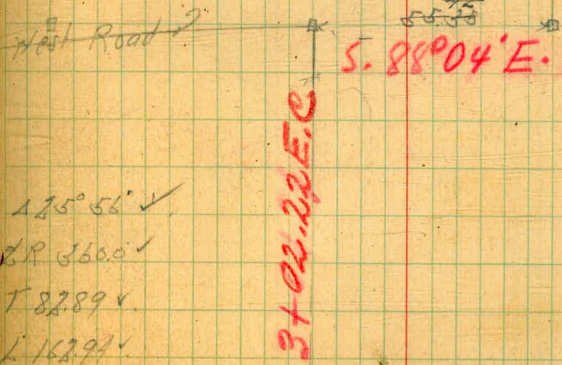 West Road
S. 88°04' E.
3+02.22 E.C
Δ 25°56' ✓
R 360.0 ✓
T 82.89 ✓
L 162.94 ✓